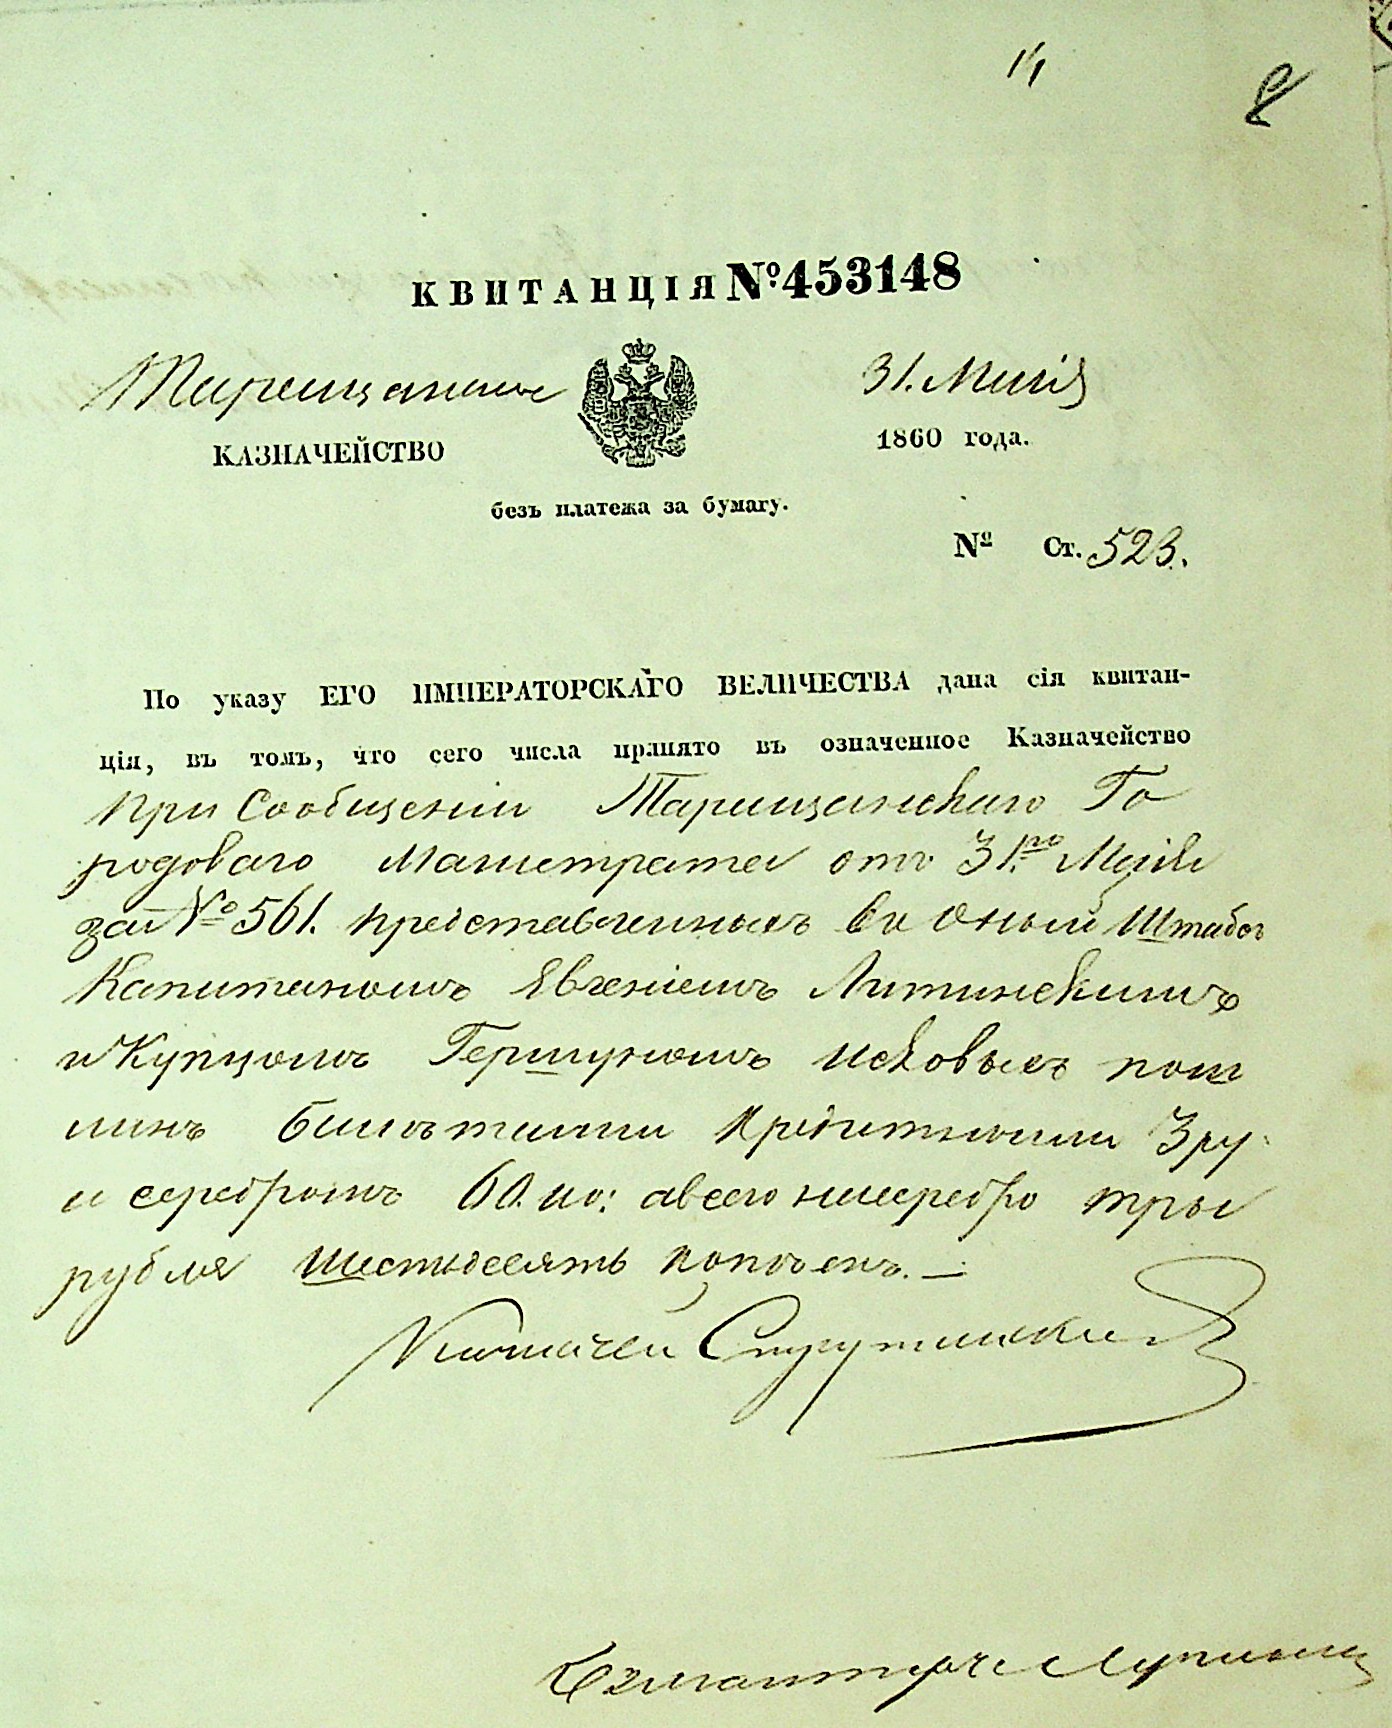 14
КВИТАНЦІЯ № 453148
Таращанское
31. Маія
КАЗНАЧЕЙСТВО
1860 года.
безъ платежа за бумагу.
№ Ст. 523.
По указу ЕГО ИМПЕРАТОРСКАГО ВЕЛИЧЕСТВА дана сія квитан-
ція, въ томъ, что сего числа принято въ означенное Казначейство
при Сообщеніи Таращанскаго Го
родоваго Магистрата отъ 31.го Маія
за № 561. представленныхъ въ оный Штабсъ
Капитаномъ Явгеніемъ Литинскимъ
и Купцомъ Гершуномъ исковыхъ пош
линъ билѣтами кредитными 3 ру.
и серебромъ 60. ко: а всего на серебро тры
рубля шестьдесять копѣекъ. —
Казначей Струтинскій
Бухгалтеръ